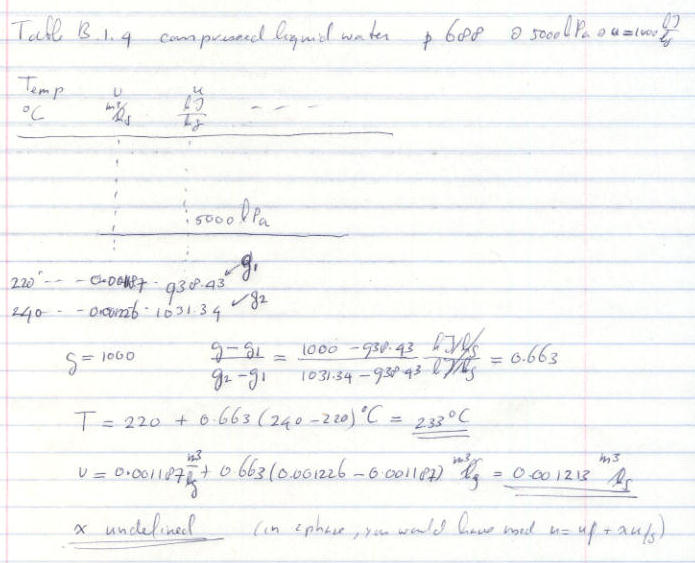 Table B.1.4 compressed liquid water p 688 @ 5000 kPa @ u=1000 kJ/kg
Temp v u
°C m³/kg kJ/kg - - -
5000 kPa
220 - - - 0.001187 - 938.43 ✓ g₁
240 - - - 0.001226 - 1031.34 ✓ g₂
g = 1000 (g-g₁)/(g₂-g₁) = (1000 - 938.43)/(1031.34 - 938.43) (kJ/kg)/(kJ/kg) = 0.663
T = 220 + 0.663 (240 - 220) °C = 233 °C
v = 0.001187 m³/kg + 0.663 (0.001226 - 0.001187) m³/kg = 0.001213 m³/kg
x undefined (in 2phase, you would have used u = uf + x ufg)